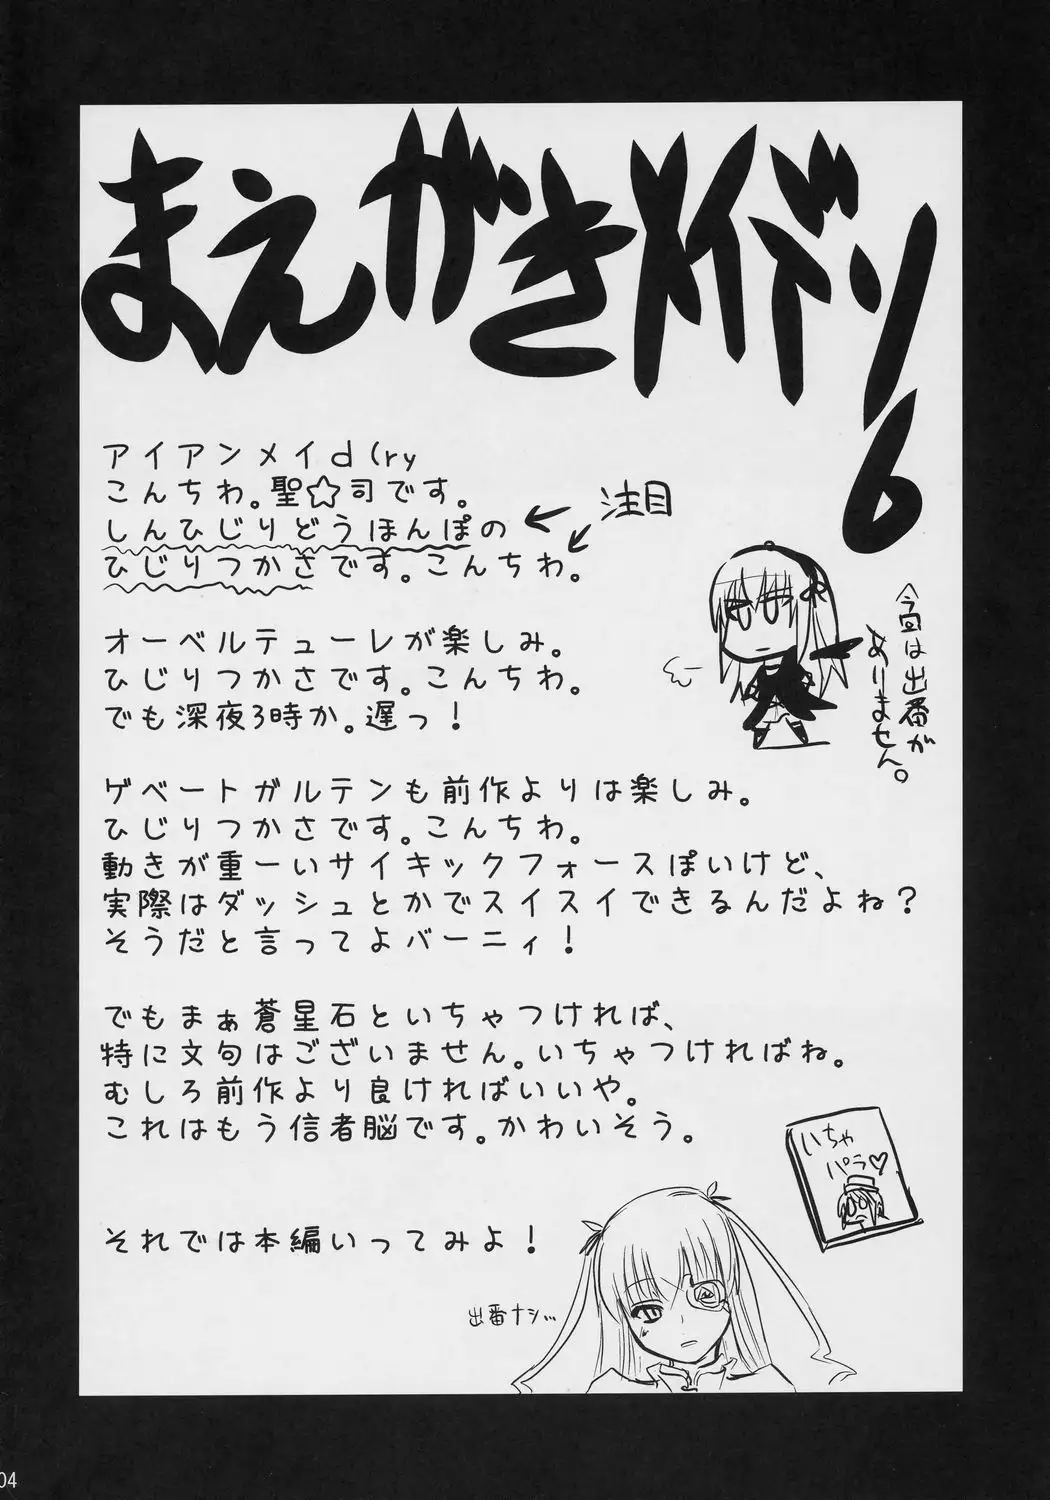 まえがきメイドソ6
アイアンメイd(ry
こんちわ。聖☆司です。
しんひじりどうほんぽの
ひじりつかさです。こんちわ。
注目
オーベルテューレが楽しみ。
ひじりつかさです。こんちわ。
でも深夜3時か。遅っ!
今回は出番が
ありません。
ゲベートガルテンも前作よりは楽しみ。
ひじりつかさです。こんちわ。
動きが重ーいサイキックフォースぽいけど、
実際はダッシュとかでスイスイできるんだよね?
そうだと言ってよバーニィ!
でもまぁ蒼星石といちゃつければ、
特に文句はございません。いちゃつければね。
むしろ前作より良ければいいや。
これはもう信者脳です。かわいそう。
いちゃ
パラ♡
それでは本編いってみよ!
出番ナシ...
04